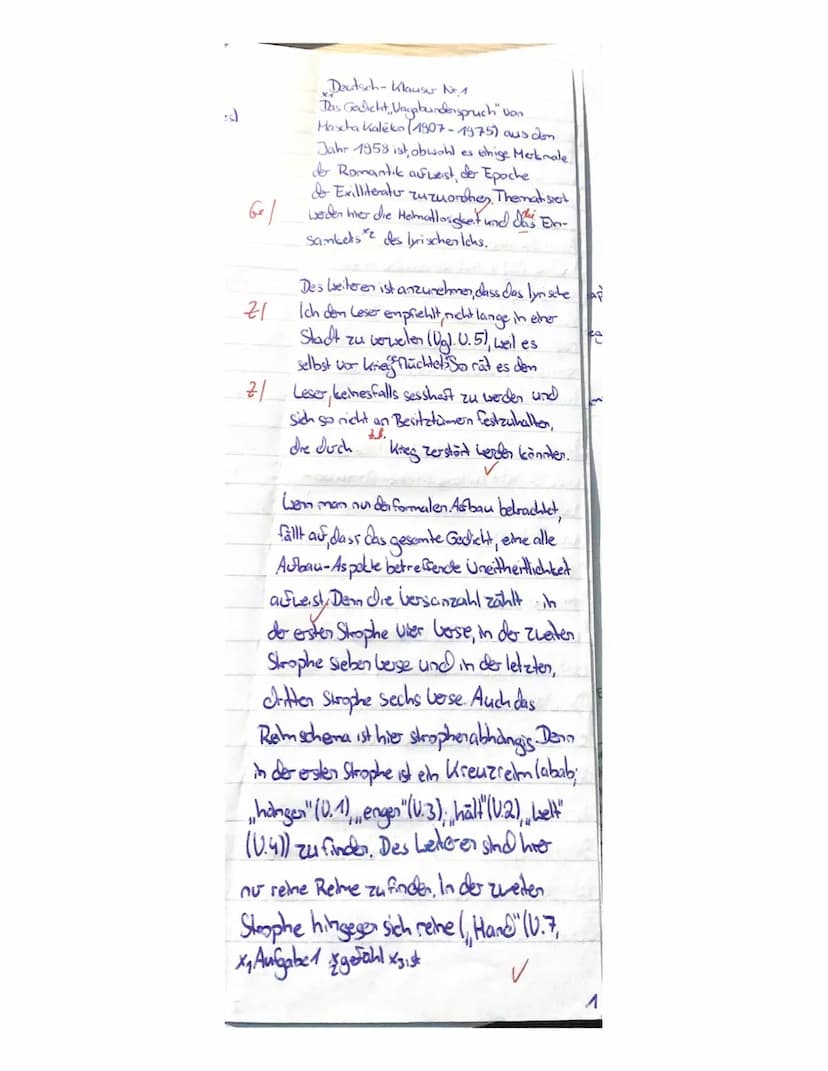 Deutsch-Klausur Nr.1
x1
Das Gedicht „Vagabundenspruch" von
Mascha Kaléko (1907-1975) aus dem
Jahr 1958 ist, obwohl es einige Merkmale
der Romantik aufweist, der Epoche
der Exilliteratur zuzuordnen. Thematisiert
Gr/ werden hier die Heimatlosigkeit und das die Ein-
samkeits x2 des lyrischen Ichs.
Des Weiteren ist anzunehmen, dass das lyrische
Z/ Ich den Leser empfiehlt, nicht lange, in einer
Stadt zu verweilen (Vgl. V.5), weil es
selbst vor Krieg geflüchtet x3 So rät es den
Z/ Leser, keinesfalls sesshaft zu werden und
sich so nicht an Besitztümern festzuhalten,
die durch z.B. Krieg zerstört werden könnten.
Wenn man nun den formalen Aufbau betrachtet,
fällt auf, dass das gesamte Gedicht, eine alle
Aufbau-Aspekte betreffende Uneitheitlichkeit
aufweist. Denn die Versanzahl zählt in
der ersten Strophe vier Verse, in der zweiten
Strophe sieben Verse und in der letzten,
dritten Strophe sechs Verse. Auch das
Reimschema ist hier strophenabhängig. Denn
in der ersten Strophe ist ein Kreuzreim (abab;
„hängen" (V.1), „engen" (V.3); „hält" (V.2), „Welt"
(V.4)) zu finden. Des Weiteren sind hier
nur reine Reime zu finden. In der zweiten
Strophe hingegen sich reihe („Hand" (V.7,
x1 Aufgabe 1 x2 gefühl x3 ist
1